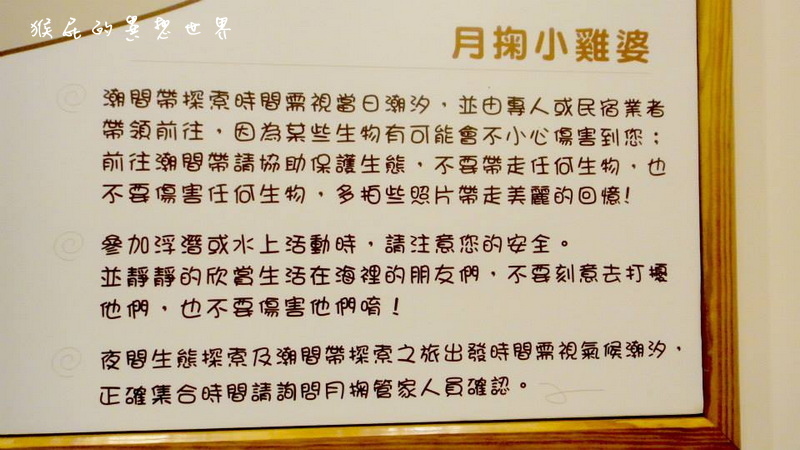 猴屁的異想世界
月掬小雞婆
潮間帶探索時間需視當日潮汐，並由專人或民宿業者
帶領前往，因為某些生物有可能會不小心傷害到您；
前往潮間帶請協助保護生態，不要帶走任何生物，也
不要傷害任何生物，多拍些照片帶走美麗的回憶！
參加浮潛或水上活動時，請注意您的安全。
並靜靜的欣賞生活在海裡的朋友們，不要刻意去打擾
他們，也不要傷害他們唷！
夜間生態探索及潮間帶探索之旅出發時間需視氣候潮汐，
正確集合時間請詢問月掬管家人員確認。